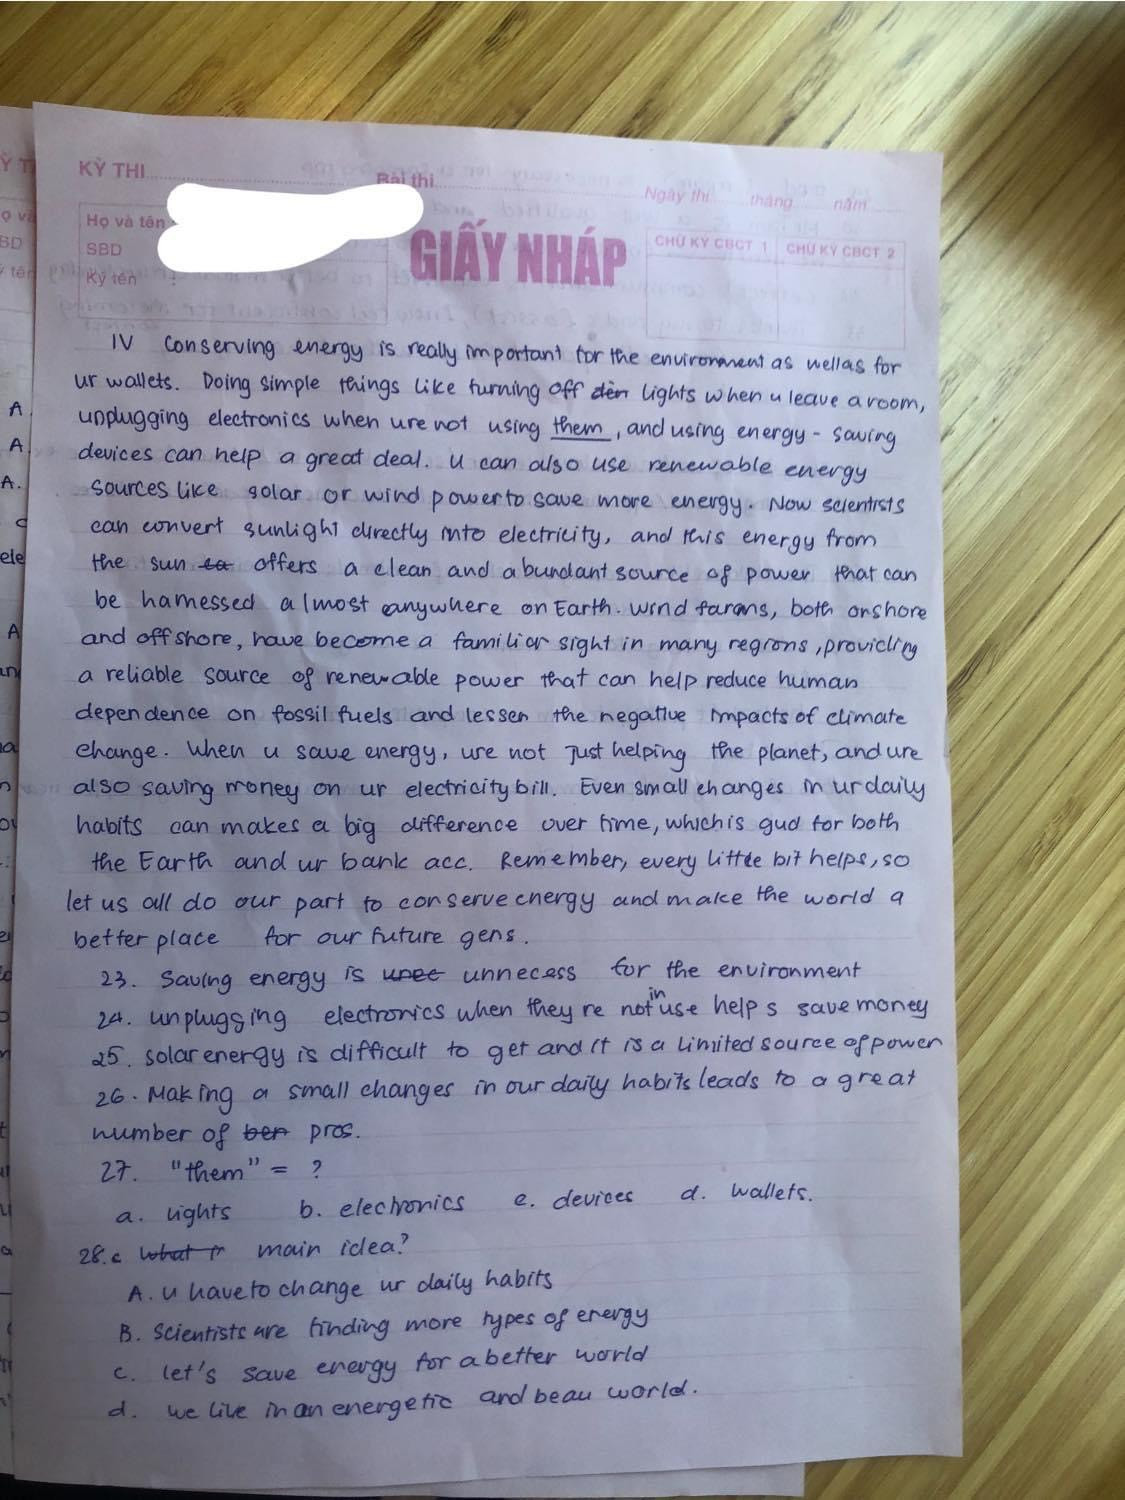 KỲ THI
Bài thi
Ngày thi tháng năm
Họ và tên
SBD
Ký tên
GIẤY NHÁP
CHỮ KÝ CBCT 1 CHỮ KÝ CBCT 2
IV Conserving energy is really important for the environment as well as for
ur wallets. Doing simple things like turning off đèn lights when u leave a room,
unplugging electronics when ure not using them, and using energy - saving
devices can help a great deal. u can also use renewable energy
sources like solar or wind power to save more energy. Now scientists
can convert sunlight directly into electricity, and this energy from
the sun ca offers a clean and abundant source of power that can
be harnessed almost anywhere on Earth. Wind farms, both onshore
and offshore, have become a familiar sight in many regions, providing
a reliable source of renewable power that can help reduce human
dependence on fossil fuels and lessen the negative impacts of climate
change. When u save energy, ure not just helping the planet, and ure
also saving money on ur electricity bill. Even small changes in ur daily
habits can makes a big difference over time, which is gud for both
the Earth and ur bank acc. Remember, every little bit helps, so
let us all do our part to conserve energy and make the world a
better place for our future gens.
23. Saving energy is unec unnecess for the environment
24. unplugging electronics when they re not in use helps save money
25. solar energy is difficult to get and it is a limited source of power
26. Making a small changes in our daily habits leads to a great
number of ben pros.
27. "them" = ?
a. lights b. electronics c. devices d. wallets.
28. What is main idea?
A. u have to change ur daily habits
B. Scientists are finding more types of energy
c. let's save energy for a better world
d. we live in an energetic and beau world.